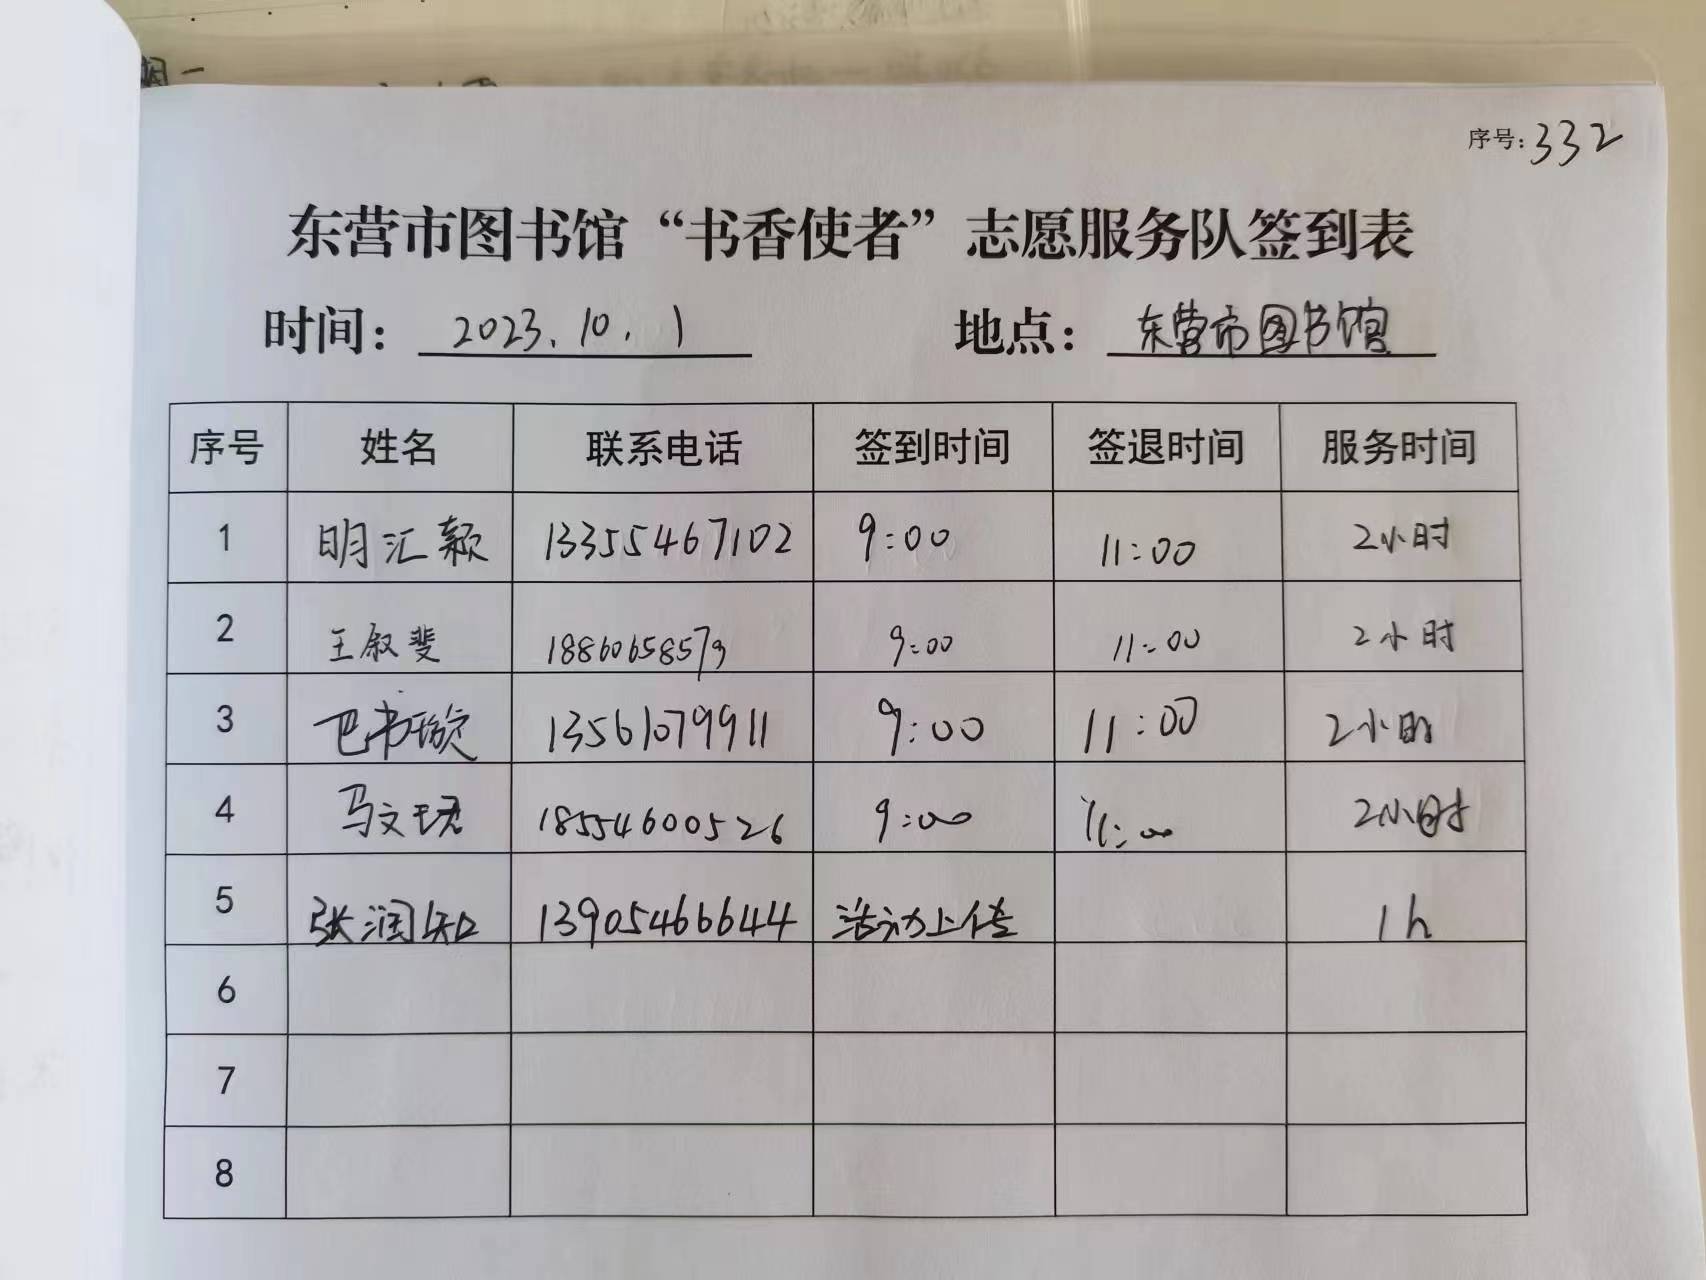 序号：332
东营市图书馆“书香使者”志愿服务队签到表
时间： 2023.10.1 地点： 东营市图书馆
序号 姓名 联系电话 签到时间 签退时间 服务时间
1 明汇颖 13355467102 9:00 11:00 2小时
2 王叙斐 18860658579 9:00 11:00 2小时
3 巴书璇 13561079911 9:00 11:00 2小时
4 马文珺 18554600526 9:00 11:00 2小时
5 张润知 13905466644 活动上传 1h
6
7
8